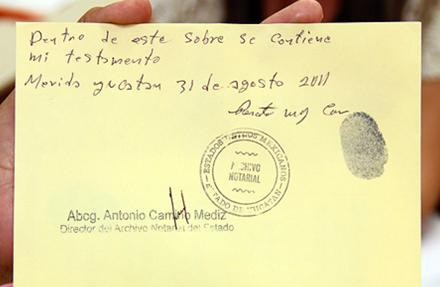 Dentro de este sobre se contiene
mi testamento
Merida yucatan 31 de agosto 2011
ESTADOS UNIDOS MEXICANOS
ARCHIVO
NOTARIAL
ESTADO DE YUCATAN
Abog. Antonio Camino Mediz
Director del Archivo Notarial del Estado